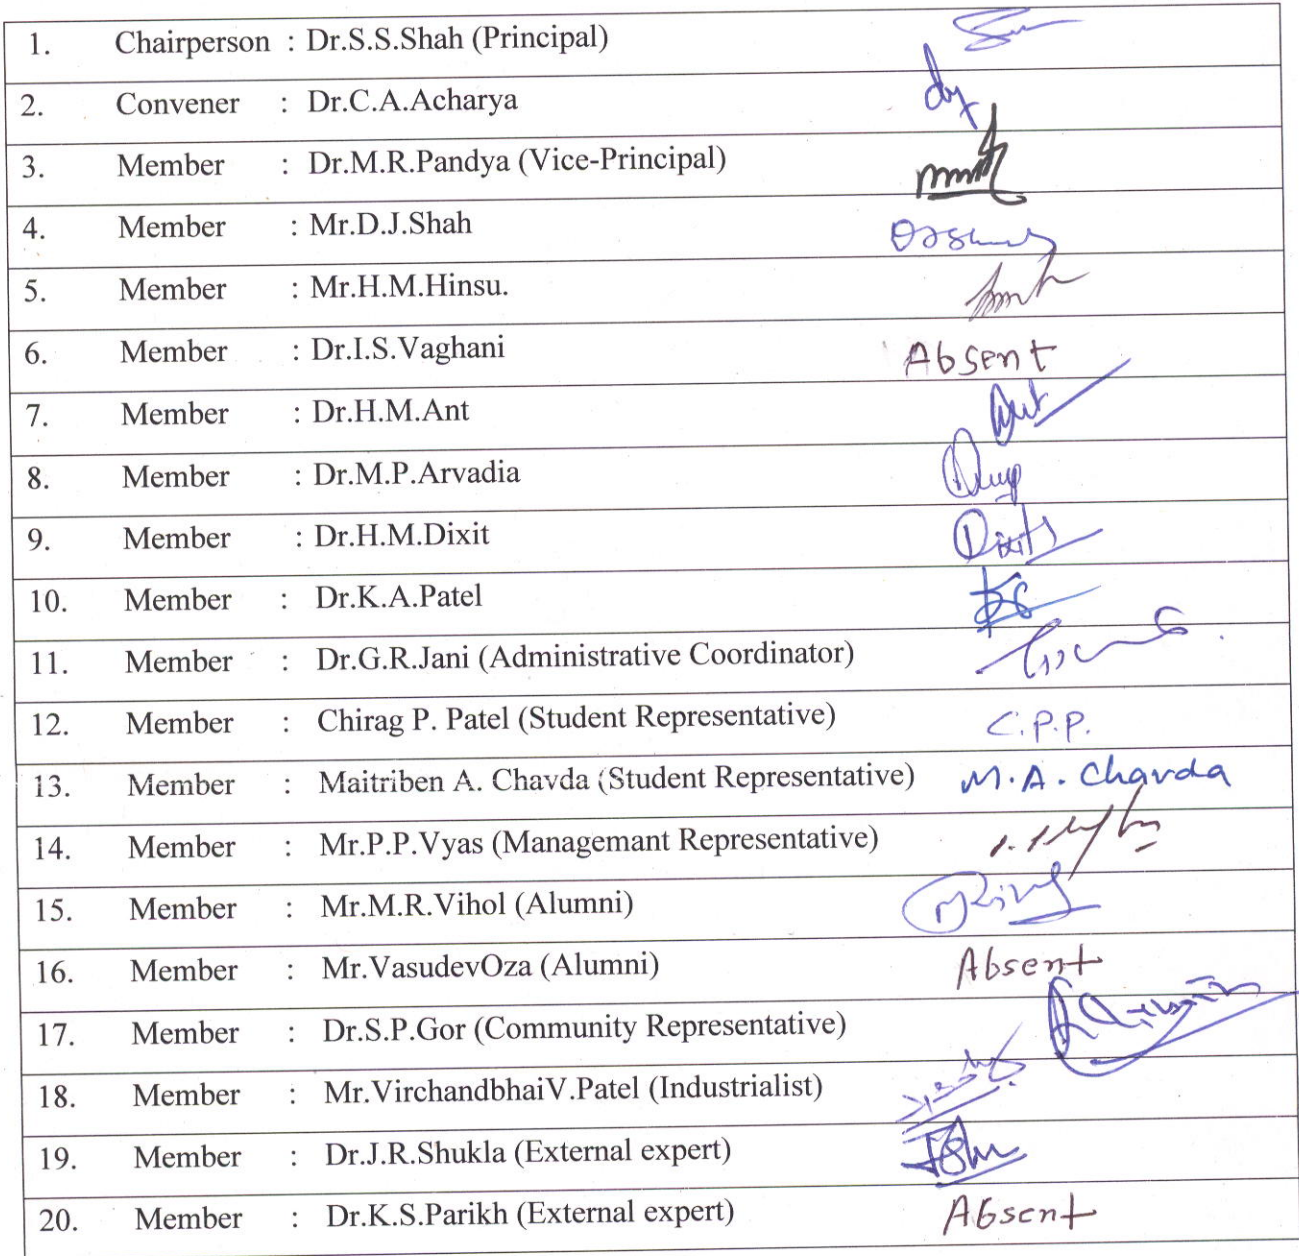 1. Chairperson : Dr.S.S.Shah (Principal)
2. Convener : Dr.C.A.Acharya
3. Member : Dr.M.R.Pandya (Vice-Principal)
4. Member : Mr.D.J.Shah
5. Member : Mr.H.M.Hinsu.
6. Member : Dr.I.S.Vaghani Absent
7. Member : Dr.H.M.Ant
8. Member : Dr.M.P.Arvadia
9. Member : Dr.H.M.Dixit Dixit
10. Member : Dr.K.A.Patel
11. Member : Dr.G.R.Jani (Administrative Coordinator)
12. Member : Chirag P. Patel (Student Representative) C.P.P.
13. Member : Maitriben A. Chavda (Student Representative) M.A. Chavda
14. Member : Mr.P.P.Vyas (Managemant Representative)
15. Member : Mr.M.R.Vihol (Alumni)
16. Member : Mr.VasudevOza (Alumni) Absent
17. Member : Dr.S.P.Gor (Community Representative)
18. Member : Mr.VirchandbhaiV.Patel (Industrialist)
19. Member : Dr.J.R.Shukla (External expert)
20. Member : Dr.K.S.Parikh (External expert) Absent